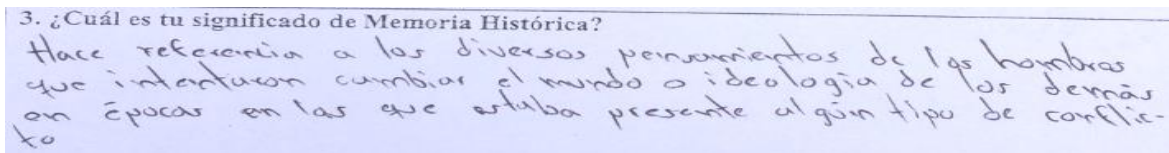 3. ¿Cuál es tu significado de Memoria Histórica?
Hace referencia a los diversos pensamientos de los hombres
que intentaron cambiar el mundo o ideología de los demás
en épocas en las que estaba presente algún tipo de conflic-
to